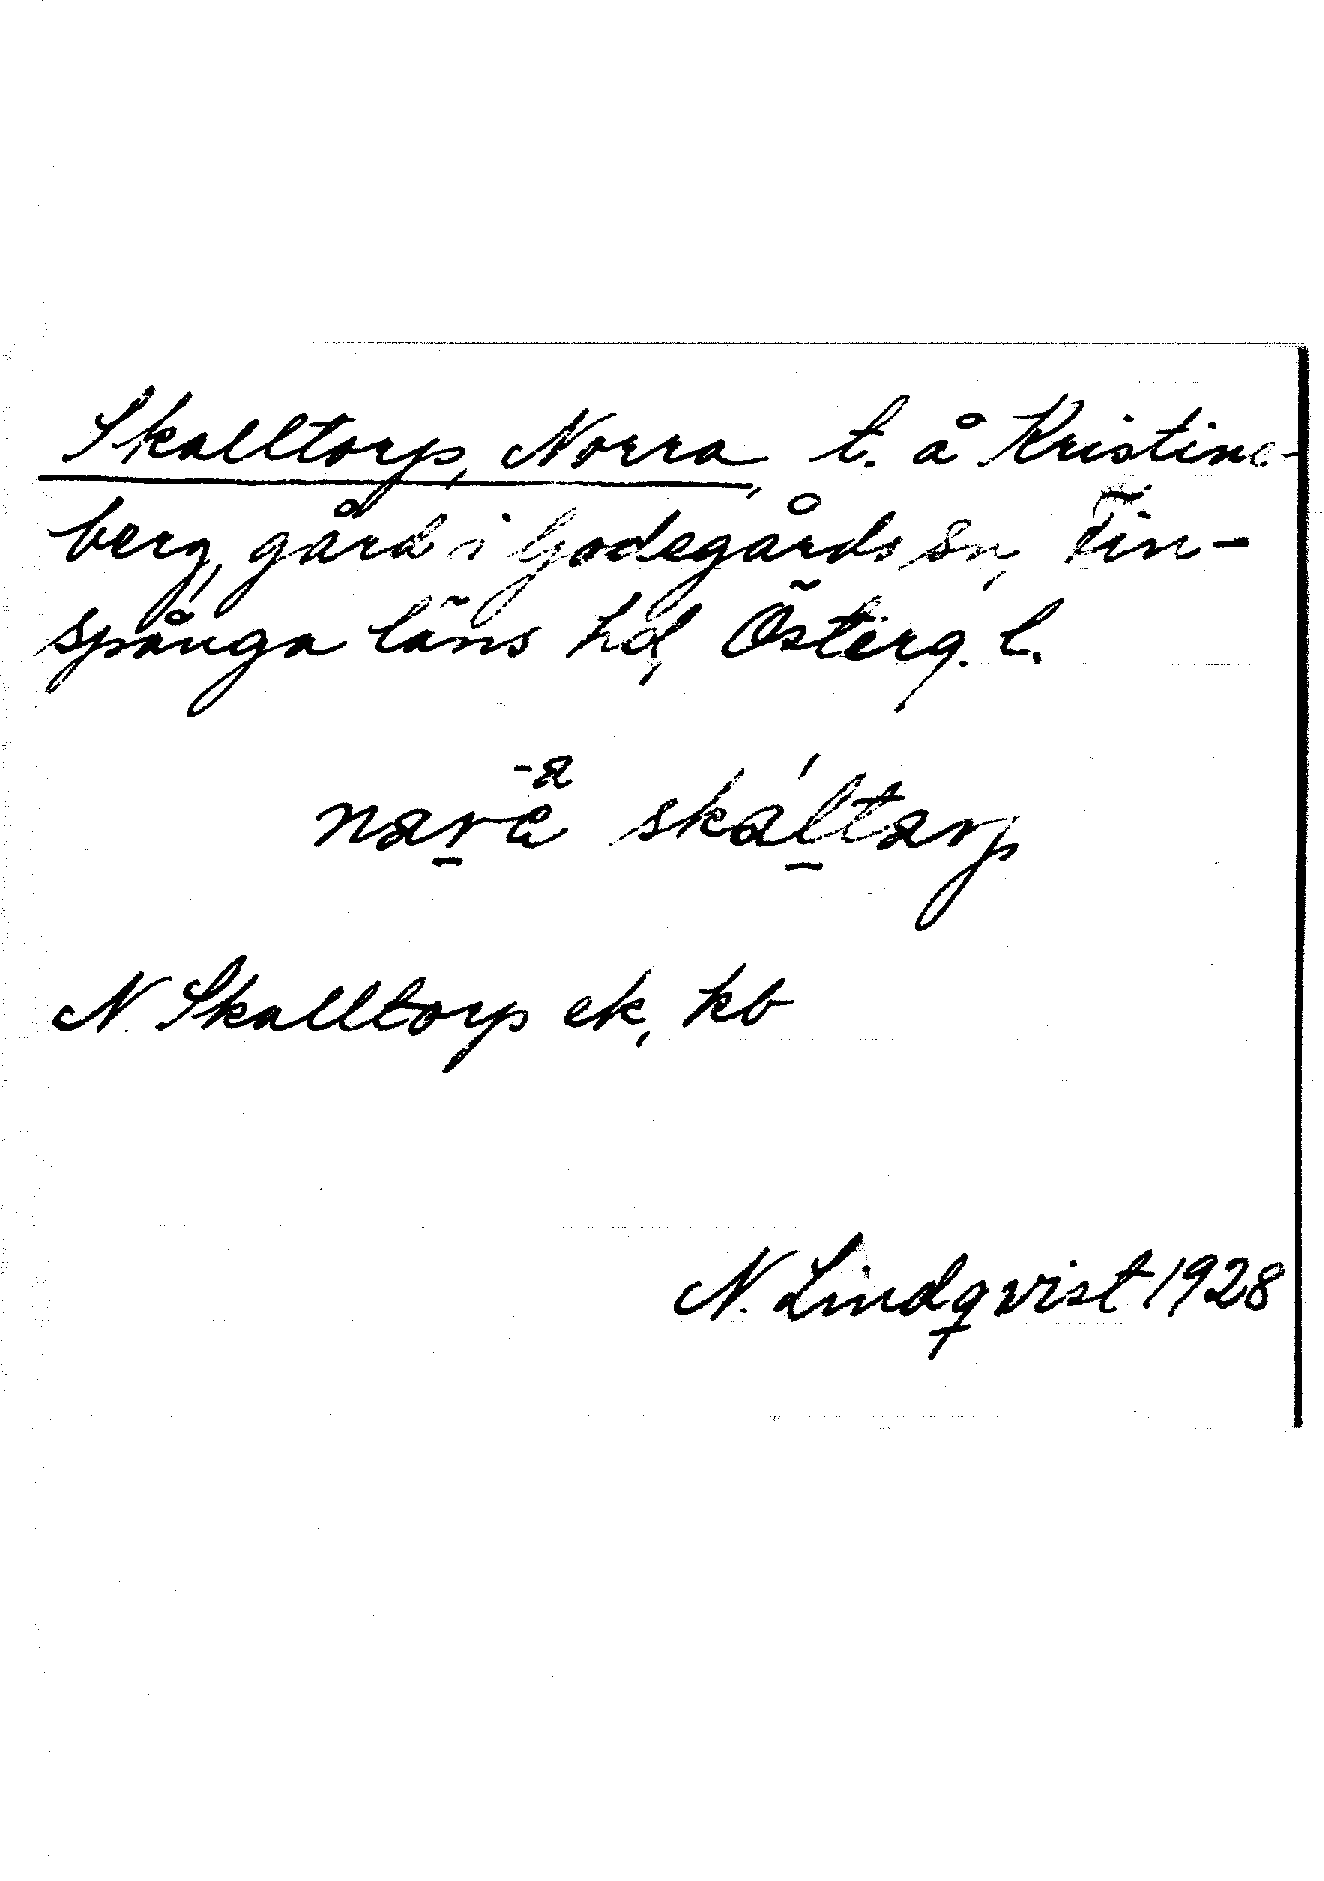 Skalltorp, Norra, t. å Kristine-
berg, gård i Godegårds sn, Fin-
spånga läns hd, Österg. l.
-a
narä skáltarp
N Skalltorp ek, kb
N. Lindqvist 1928